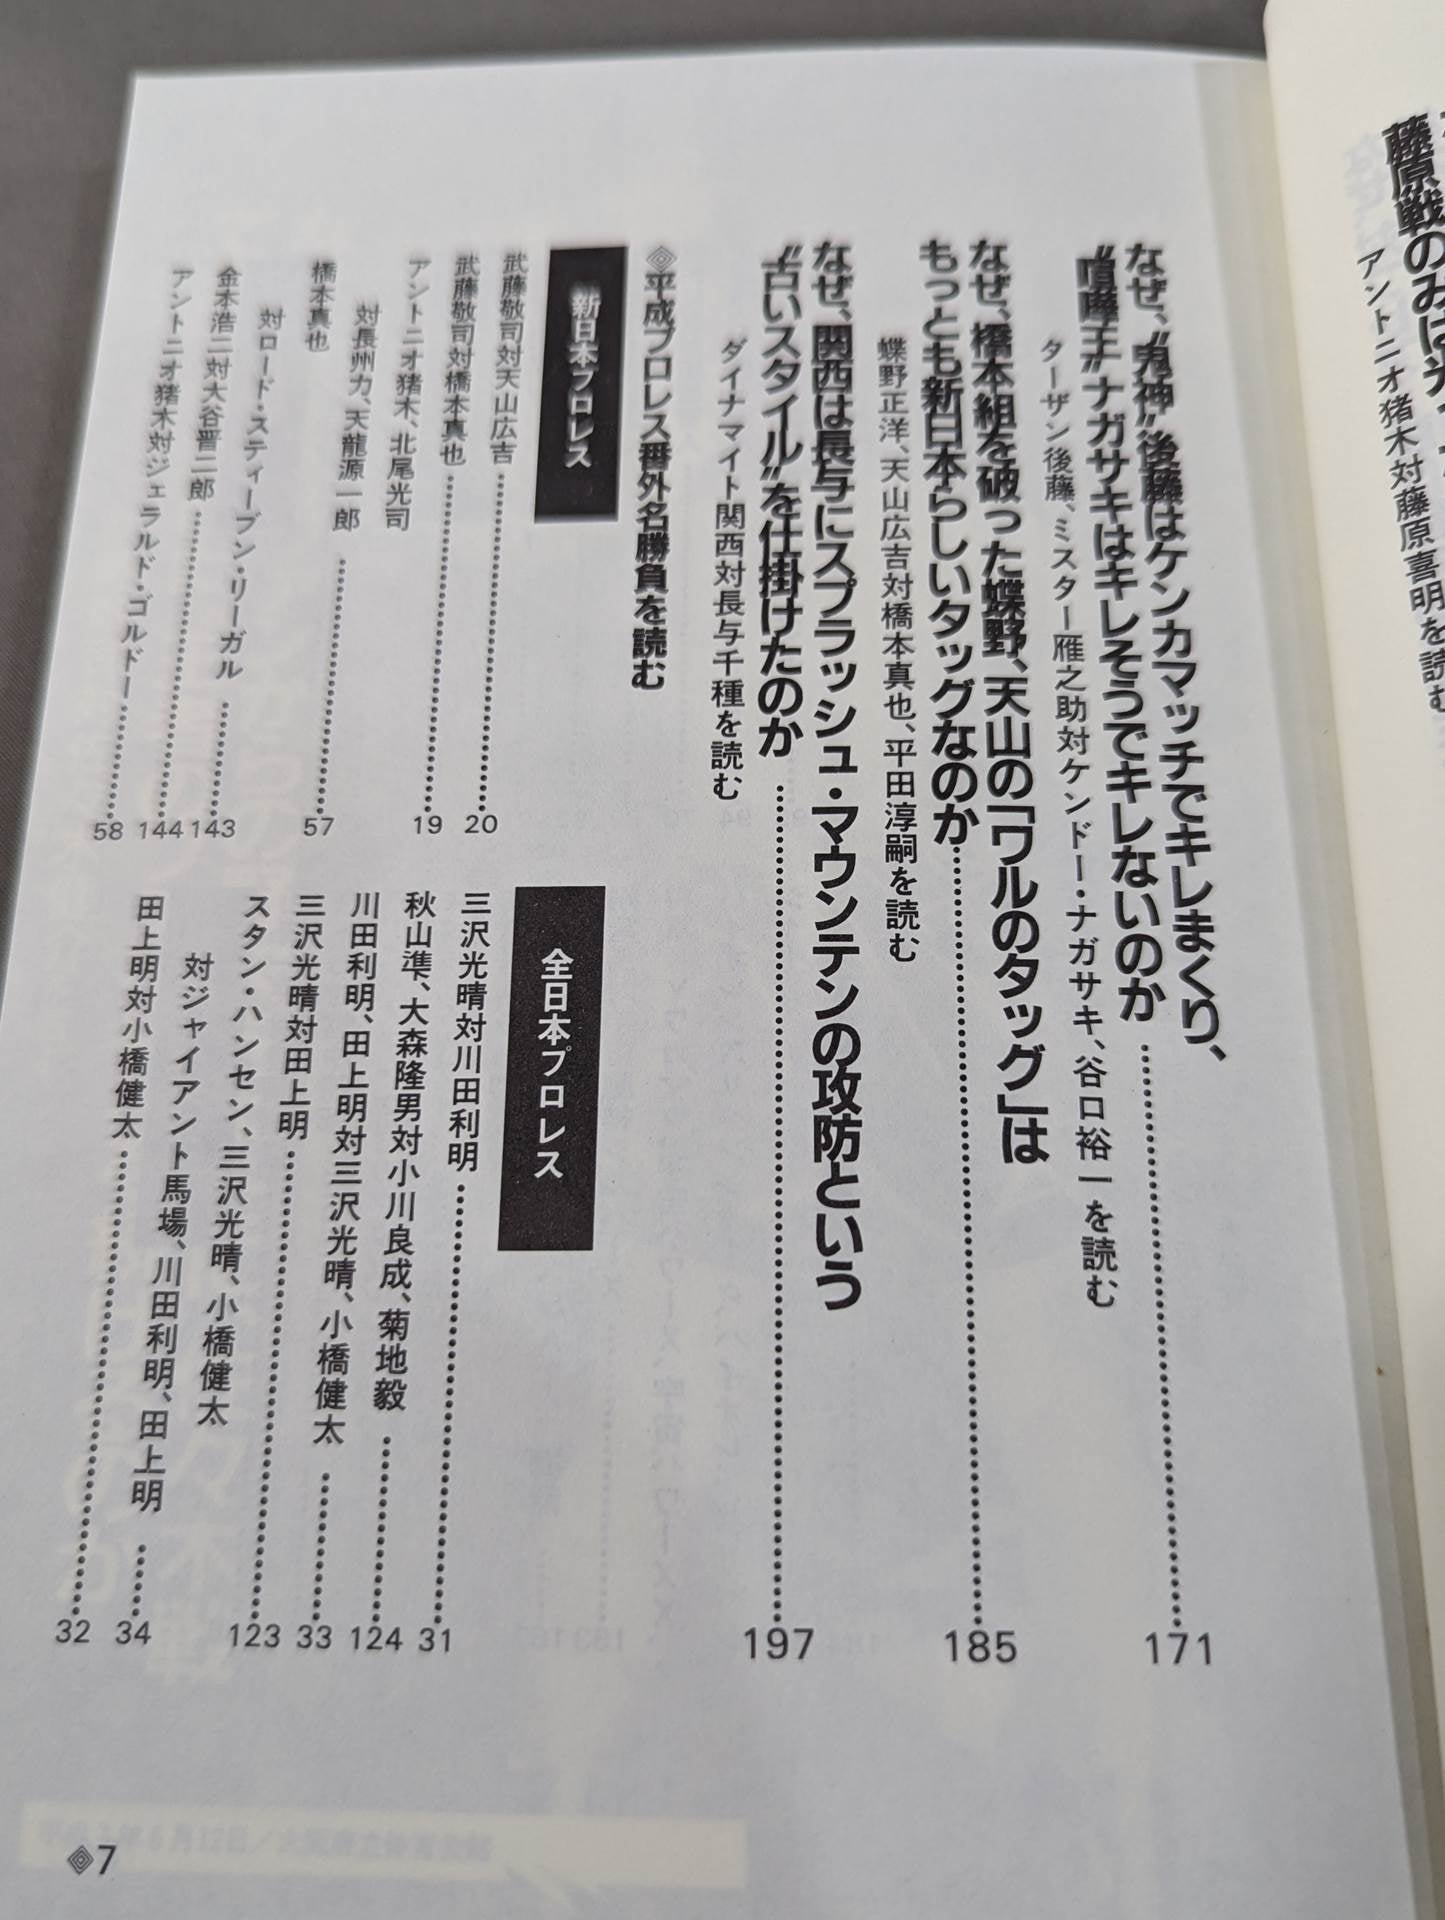 藤原戦のみは
アントニオ猪木対藤原喜明を読む
なぜ、“鬼神”後藤はケンカマッチでキレまくり、
“喧嘩王”ナガサキはキレそうでキレないのか……171
ターザン後藤、ミスター雁之助対ケンドー・ナガサキ、谷口裕一を読む
なぜ、橋本組を破った蝶野、天山の「ワルのタッグ」は
もっとも新日本らしいタッグなのか……185
蝶野正洋、天山広吉対橋本真也、平田淳嗣を読む
なぜ、関西は長与にスプラッシュ・マウンテンの攻防という
“古いスタイル”を仕掛けたのか……197
ダイナマイト関西対長与千種を読む
◈平成プロレス番外名勝負を読む
新日本プロレス
武藤敬司対天山広吉……20
武藤敬司対橋本真也……19
アントニオ猪木、北尾光司
対長州力、天龍源一郎……57
橋本真也
対ロード・スティーブン・リーガル……143
金本浩二対大谷晋二郎……144
アントニオ猪木対ジェラルド・ゴルドー……58
全日本プロレス
三沢光晴対川田利明……31
秋山準、大森隆男対小川良成、菊地毅……124
川田利明、田上明対三沢光晴、小橋健太……33
三沢光晴対田上明……123
スタン・ハンセン、三沢光晴、小橋健太
対ジャイアント馬場、川田利明、田上明……34
田上明対小橋健太……32
◈7